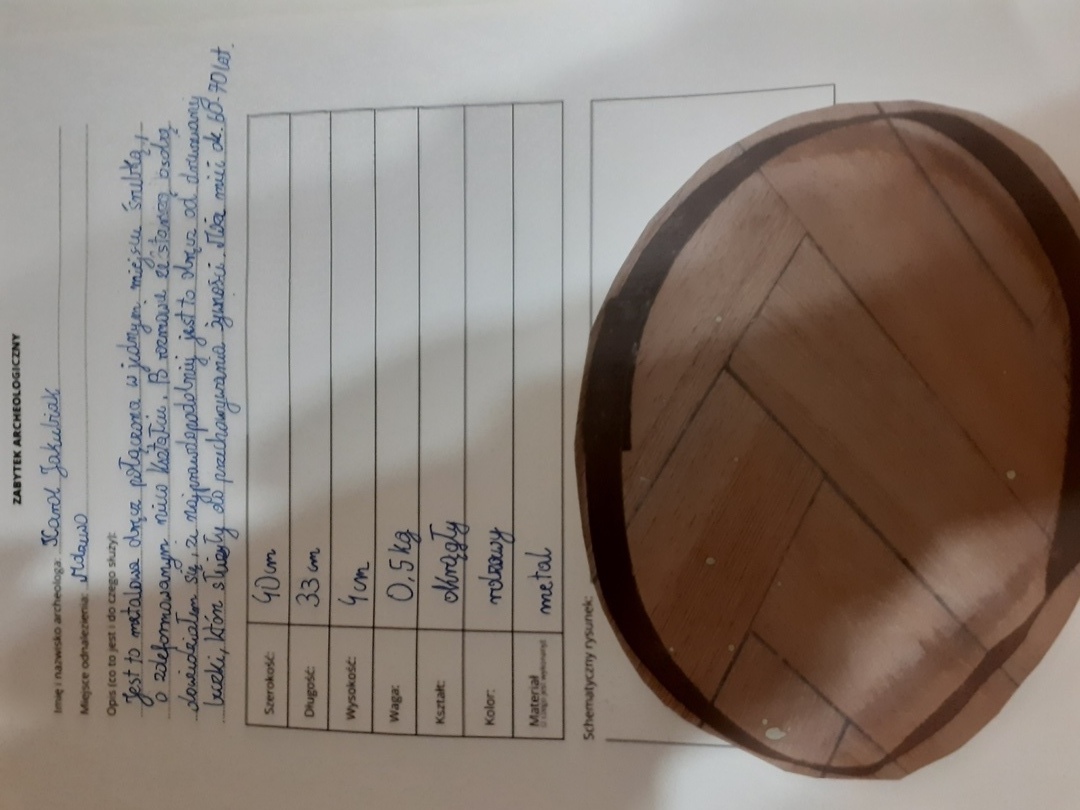 ZABYTEK ARCHEOLOGICZNY
Imię i nazwisko archeologa: Karol Jakubiak
Miejsce odnalezienia: Mdzewo
Opis (co to jest i do czego służy):
Jest to metalowa obręcz połączona w jednym miejscu śrubką,
o zdeformowanym nieco kształcie. Po rozmowie ze starszą osobą
dowiedziałem się, iż najprawdopodobniej jest to obręcz od drewnianej
beczki, które służyły do przechowywania żywności. Ma mieć ok. 60-70 lat.
Szerokość: 40 cm
Długość: 33 cm
Wysokość: 4 cm
Waga: 0,5 kg
Kształt: okrągły
Kolor: rdzawy
Materiał metal
(z czego jest wykonany)
Schematyczny rysunek: